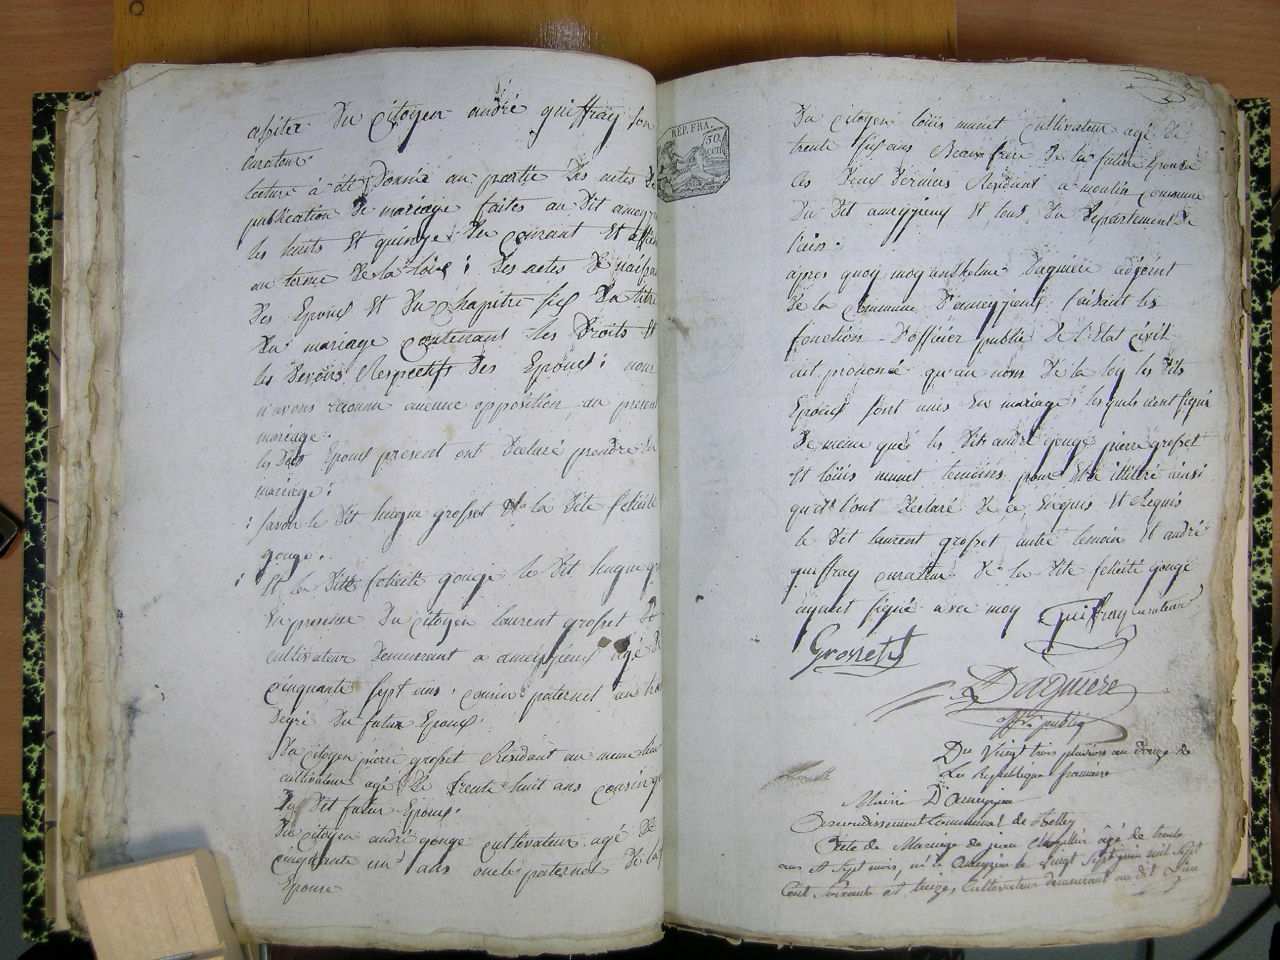 assister du citoyen andré guiffray son
curateur
lecture à été donné au partie des actes de
publication de mariage faites au dit ameyz
les huits et quinze du courant et affich
au terme de la loi ; des actes de naissan
des Epoux et du chapitre six du titre
du mariage contenant les droits et
les devoirs Respectifs des Epoux ; nous
n'avons reconnu aucune opposition au present
mariage.
les dits Epoux present ont declaré prendre en
mariage :
savoir le dit hugue grosset la dite felicité
gouge.
Et la ditte felicité gouge le dit hugue gr
En presence du citoyen laurent grosset
cultivateur demeurant a ameyzieux agé de
cinquante sept ans, cousin paternel au
degré du futur Epoux.
Du citoyen pierre grosset Residant au meme lieu
cultivateur agé de trente huit ans cousin
du dit futur Epoux.
Du citoyen andré gouge cultivateur agé de
cinquante un ans oncle paternel de la
Epouse
REP. FRA.
50
Du citoyen loüis munet cultivateur agé de
trente six ans Beaufrere de la future Epouse
les deux derniers Residant a moulin commune
du dit ameyzieux et tous du departement de
l'ain.
apres quoy moy anthelme Daguiere adjoint
de la commune d'ameyzieux faisant les
fonction d'officier public de l'Etat civil
ait prononcé qu'au nom de la loy les dits
Epoux sont unis en mariage ; lesquels n'ont signé
de meme que les dits andré gouge pierre grosset
Et loüis munet temoins pour etre illitéré ainsi
qu'ils l'ont declaré de ce Enquis et Requis
le dit laurent grosset autre temoin et andré
guiffray curateur de la dite felicité gouge
ayant signé avec moy Guiffray curateur
Grosset
Daguiere
offr. public
Du Vingt trois pluviose an douze de
La République francaise
Mairie D'ameyzieu
Arrondissement Communal de Belley
Acte de Mariage de pierre agé de trente
ans et sept mois, né a Ameyzieu le vingt sept juin mil sept
Cent Soixante et treize, Cultivateur demeurant au dit Lieu